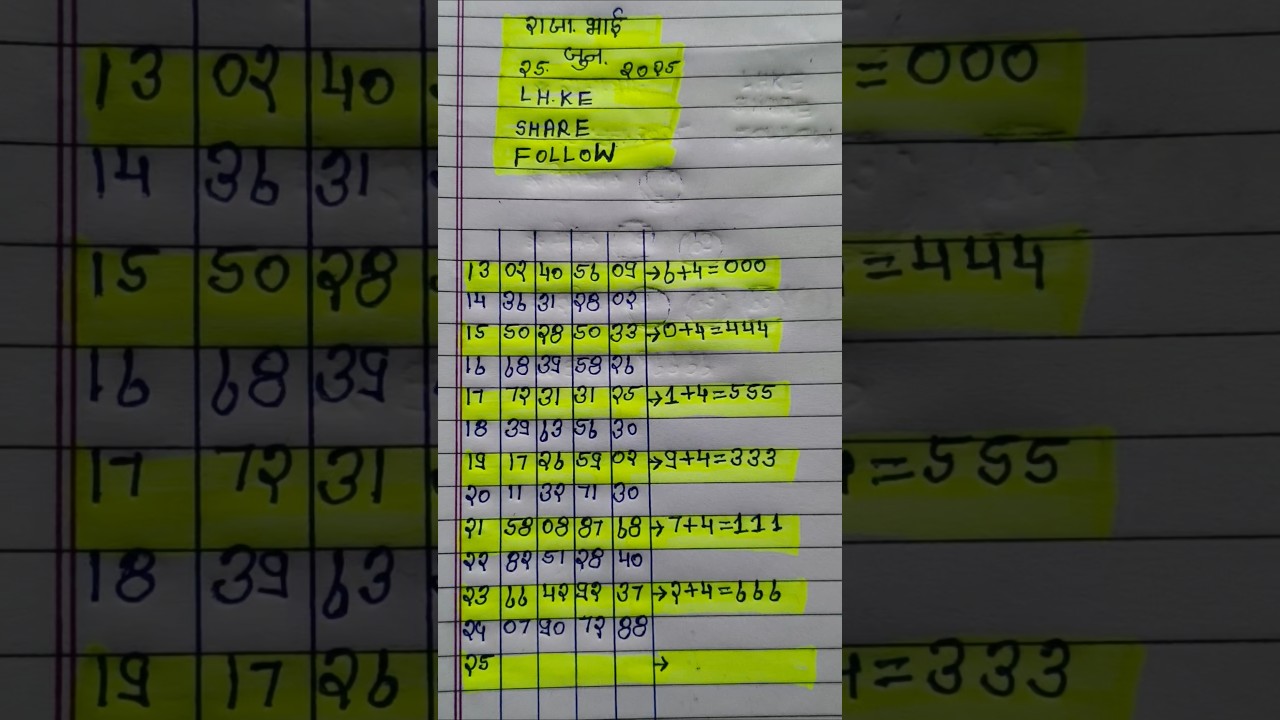 राजा भाई
जुन.
२५. २०२५
LH.KE
SHARE
FOLLOW
13 0२ 40 56 09 →6+4=000
14 36 31 २8 0२
15 50 २8 50 33 →0+4=444
16 68 39 58 २6
17 7२ 31 31 २5 →1+4=555
18 39 63 56 30
19 17 २6 59 0२ →9+4=333
२0 11 3२ 71 30
२1 58 08 87 68 →7+4=111
२२ 8२ 51 २8 40
२3 66 4२ 9२ 37 →२+4=666
२4 07 90 7२ 88
२5 →
13 0२ 40
14 36 31
15 50 २8
16 68 39
17 7२ 31
18 39 63
19 17 २6
=000
=444
=555
=333